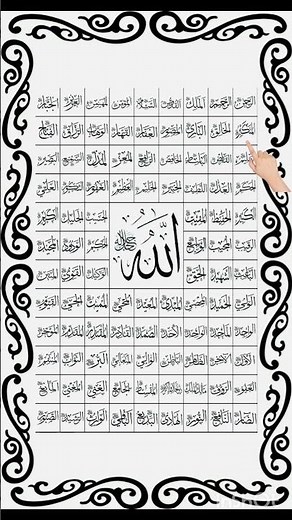 الرحمن الرحيم الملك القدوس السلام المؤمن المهيمن العزيز الجبار
المتكبر الخالق البارئ المصور الغفار القهار الوهاب الرزاق الفتاح
العليم القابض الباسط الخافض الرافع المعز المذل السميع البصير
الحكم العدل اللطيف الخبير الحليم العظيم الغفور الشكور العلي
الكبير الحفيظ المقيت الحسيب الجليل الكريم
الرقيب المجيب الواسع الحكيم الودود المجيد
الله
الباعث الشهيد الحق الوكيل القوي المتين
الولي الحميد المحصي المبدئ المعيد المحيي المميت الحي القيوم
الواجد الماجد الواحد الأحد الصمد القادر المقتدر المقدم المؤخر
الأول الآخر الظاهر الباطن الوالي المتعالي البر التواب المنتقم
العفو الرؤوف مالك الملك المقسط الجامع الغني المغني المانع
الضار النافع النور الهادي البديع الباقي الوارث الرشيد الصبور